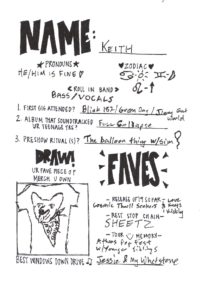 NAME: KEITH
★PRONOUNS★
HE/HIM IS FINE
♥ZODIAC♥
<ROLL IN BAND>
BASS/VOCALS
1. FIRST GIG ATTENDED? Blink 182/Green Day/Jimmy Eat World
2. ALBUM THAT SOUNDTRACKED
UR TEENAGE YRS? Full Collapse
3. PRESHOW RITUAL(S)? The balloon thing w/Sim
DRAW!
UR FAVE PIECE OF
MERCH U OWN
FAVES
- RELEASE OF 19 SO FAR - Love
Cosmic Thrill Seekers & Keeps Kicking
- REST STOP CHAIN -
SHEETZ
- TOUR MEMORY -
Athens Pop Fest
w/ siblings
BEST WINDOWS DOWN DRIVE
Jessie & My Whetstone